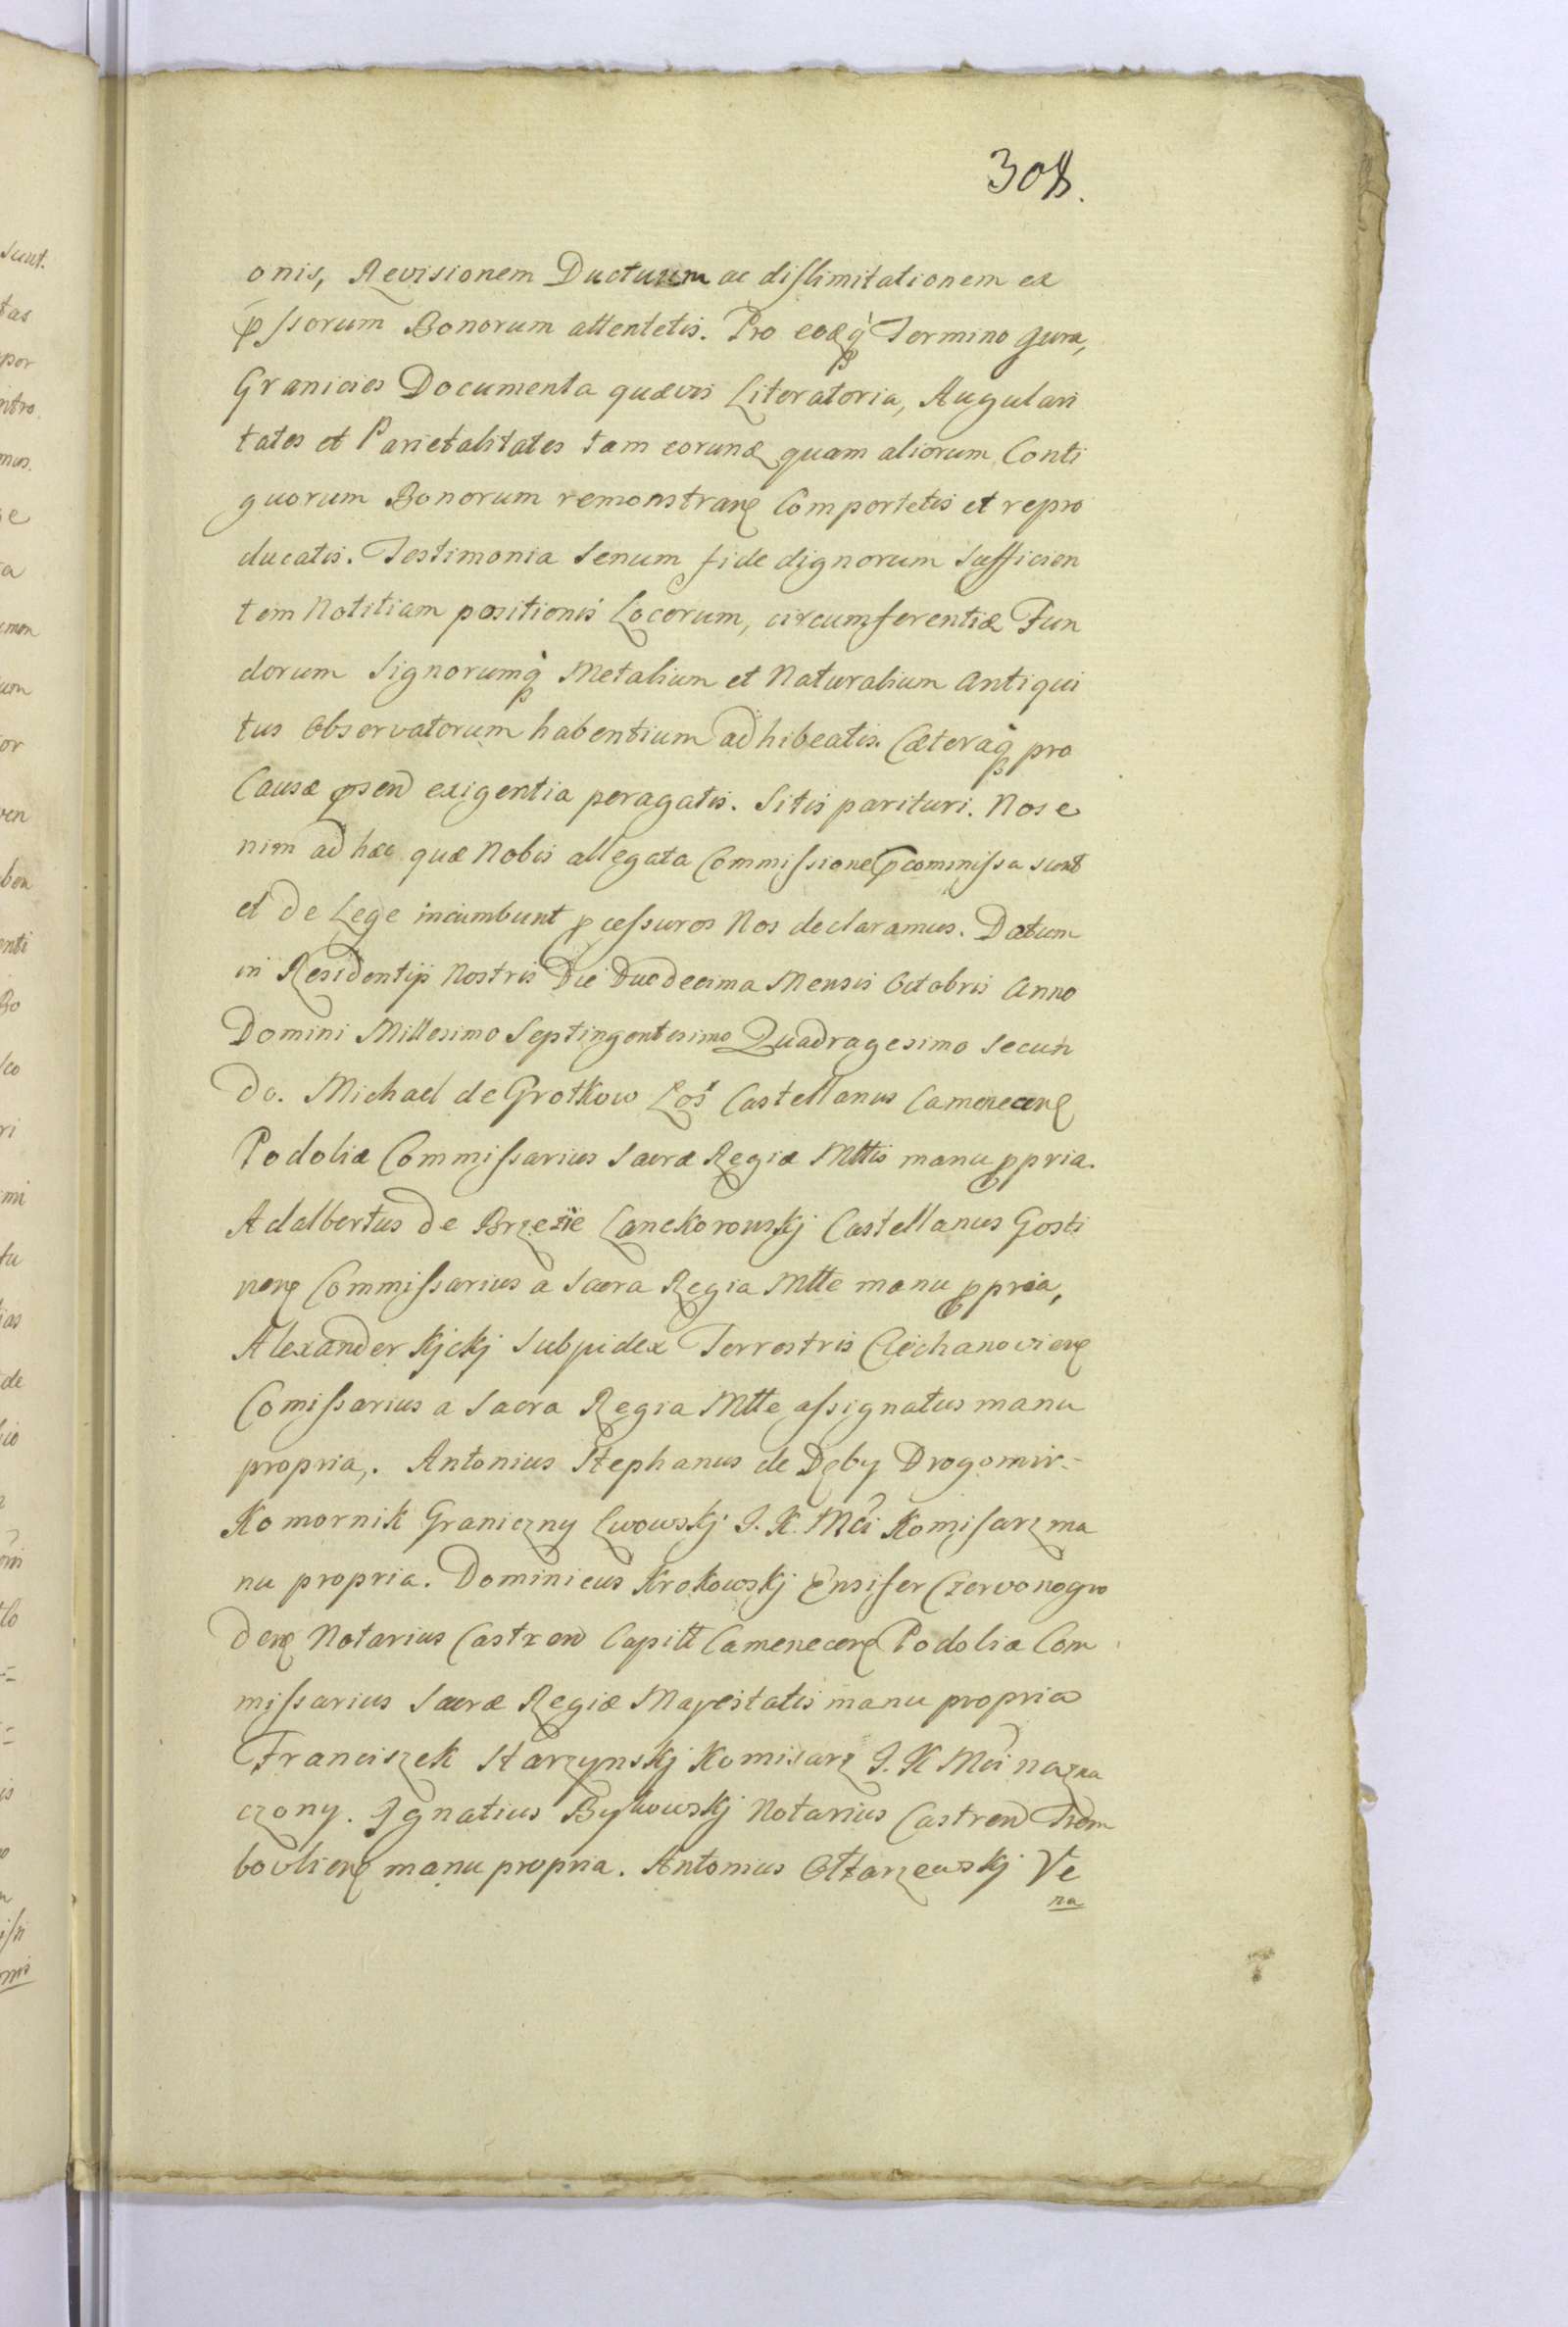 308.
onis, Revisionem Ductuum ac dislimitationem ex
pssorum Bonorum attentetis. Pro eodq̀ Termino Jura,
Granicies Documenta quævis Literatoria, Angulari
tates et Parietalitates tam eorund quam aliorum Conti
guorum Bonorum remonstran Comportetis et repro
ducatis. Testimonia Senum fide dignorum Sufficien
tem Notitiam positionis Locorum, circumferentiæ Fun
dorum Signorumq̀ Metalium et Naturalium Antiqui
tus Observatorum habentium adhibeatis. Cæteraq̀ pro
Causæ psen exigentia peragatis. Sitis parituri. Nos e
nim ad hæc quæ Nobis allegata Commissione commissa sunt
et de Lege incumbunt pcessuros Nos declaramus. Datum
in Residentijs Nostris Die Duodecima Mensis Octobris Anno
Domini Millesimo Septingentesimo Quadragesimo Secun
do. Michael de Grotkow Łoś Castellanus Camenecen
Podoliæ Commissarius Sacræ Regiæ Mttis manu ppria.
Adalbertus de Brzezie Lanckorowskj Castellanus Gosti
nen Commissarius a Sacra Regia Mtte manu ppria,
Alexander Kjckj Subjudex Terrestris Ciechanovien
Comissarius a Sacra Regia Mtte assignatus manu
propria,. Antonius Stephanus de Dęby Drogomir=
Komornik Graniczny Lwowskj J. K. Mći Komisarz ma
nu propria. Dominicus Krokowskj Ensifer Czervonogro
den Notarius Castren Capitt Camenecen Podoliæ Com
missarius Sacræ Regiæ Majestatis manu propria
Franciszek Starzynskj Komisarz J. K Mći nazna
czony. Ignatius Bykowskj Notarius Castren Trem
bovlien manu propria. Antonius Ottarzewskj Ve
na